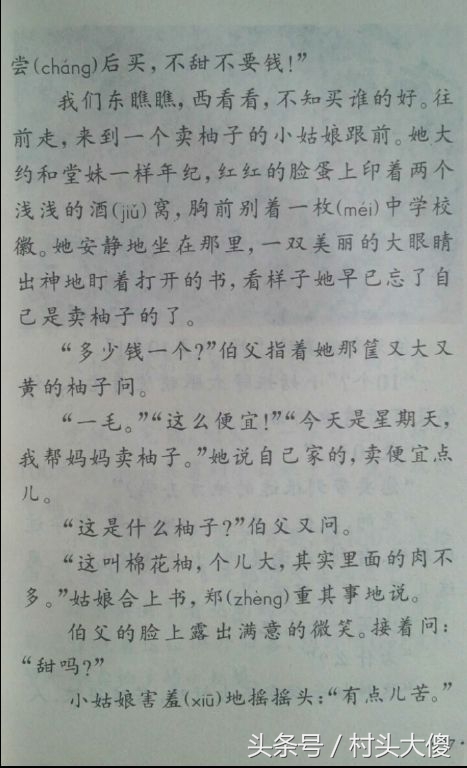 尝(cháng)后买，不甜不要钱！”
我们东瞧瞧，西看看，不知买谁的好。往
前走，来到一个卖柚子的小姑娘跟前。她大
约和堂妹一样年纪，红红的脸蛋上印着两个
浅浅的酒(jiǔ)窝，胸前别着一枚(méi)中学校
徽。她安静地坐在那里，一双美丽的大眼睛
出神地盯着打开的书，看样子她早已忘了自
己是卖柚子的了。
“多少钱一个？”伯父指着她那筐又大又
黄的柚子问。
“一毛。”“这么便宜！”“今天是星期天，
我帮妈妈卖柚子。”她说自己家的，卖便宜点
儿。
“这是什么柚子？”伯父又问。
“这叫棉花柚，个儿大，其实里面的肉不
多。”姑娘合上书，郑(zhèng)重其事地说。
伯父的脸上露出满意的微笑。接着问：
“甜吗？”
小姑娘害羞(xiū)地摇摇头：“有点儿苦。”
头条号 / 村头大傻